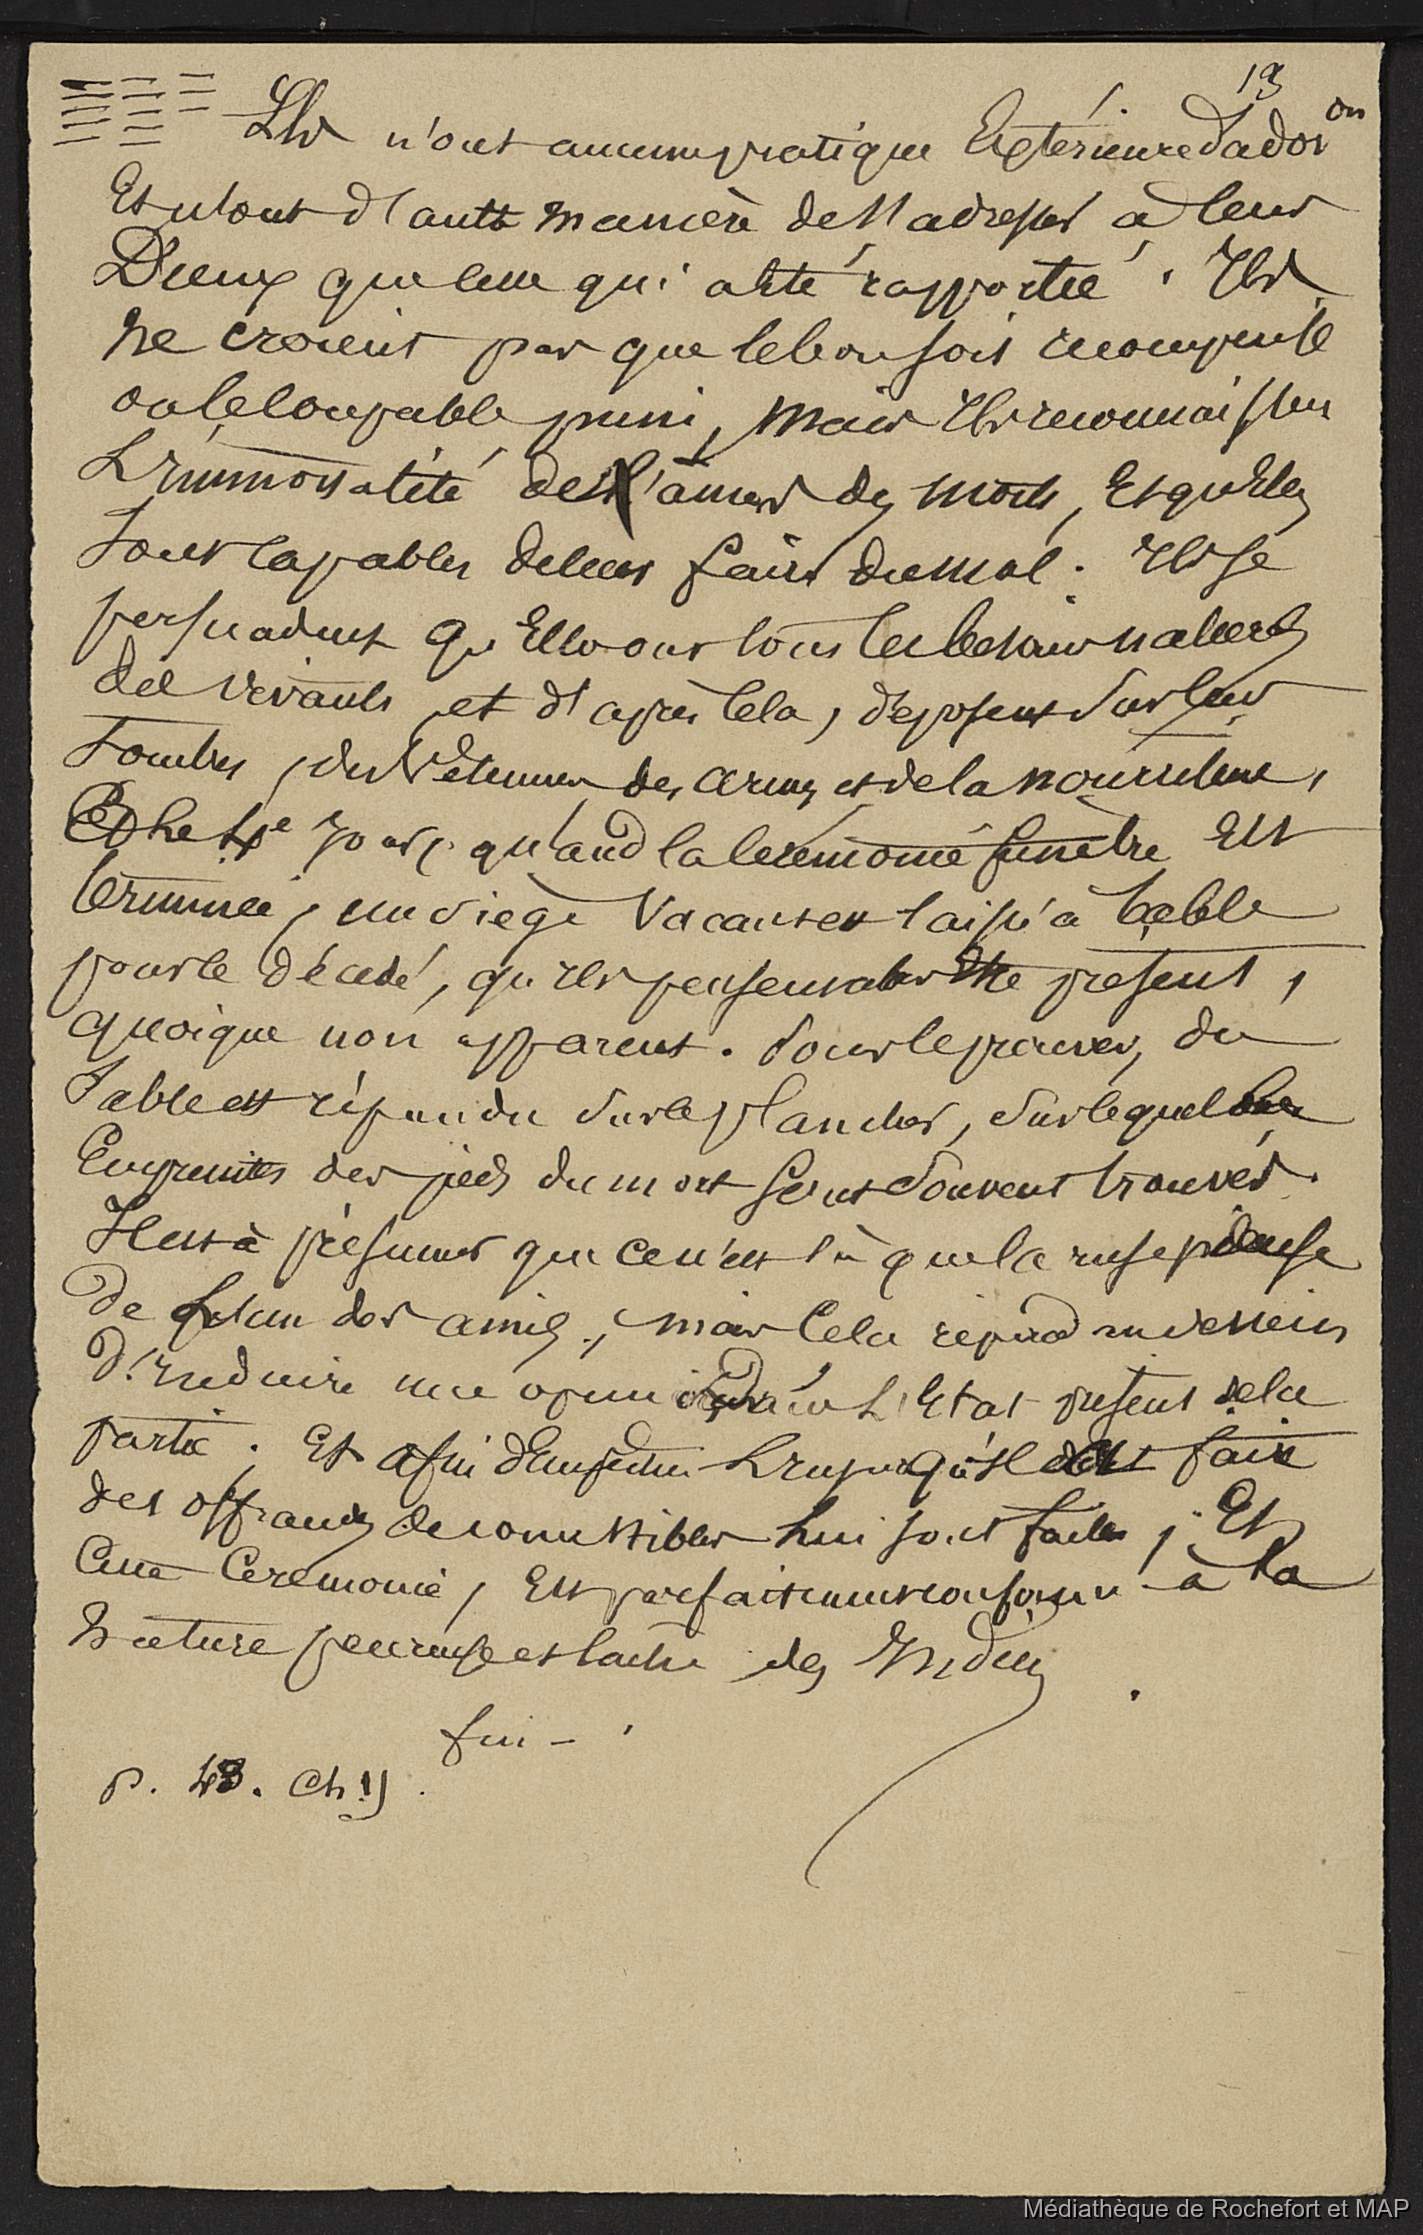 13
Ils n'ont aucune pratique Extérieure d'ador on
Et n'ont d'autre manière de s'adresser à leurs
Dieux que celle qui a été rapportée. Ils
ne croient pas que le bon soit récompensé
ou le coupable puni, mais Ils reconnaissent
L'immortalité des âmes des morts, Et qu'Elles
sont capables de leur faire du mal. Ils se
persuadent qu'Elles ont tous les besoins naturels
des vivants, et d'après cela, déposent sur leurs
Tombes, des vêtemens, des armes et de la nourriture,
Le 4e Jour, quand la cérémonie funèbre Est
terminée, un siège vacant est laissé à table
pour le décédé, qu'ils pensent alors être présent,
quoique non apparent. Pour le prouver, du
sable est répandu sur le plancher, sur lequel les
Empreintes des pieds du mort sont souvent trouvés.
Il est à présumer que ce n'est là que la ruse pieuse
de des amis, mais cela répond au dessein
d'Induire une opinion L'Etat présent de la
partie. Et afin d' qu'Il doit faire
des offrandes de comestibles Lui sont faites, Et
Cette Cérémonie, Est parfaitement conforme à la
Nature peureuse et lâche des Indiens
fin -
p. 48. Ch. 11.
Médiathèque de Rochefort et MAP